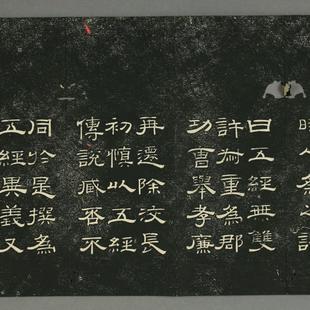 時人為之語
曰五經無雙
許叔重為郡
功曹舉孝廉
再遷除洨長
初慎以五經
傳說臧否不
同於是撰為
五經異義又